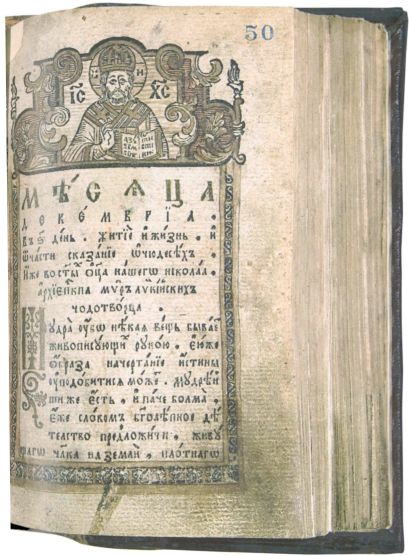 50
І҃С Х҃С
МѢСѦЦА
ДЕКЕ́МВРЇА .
въ ѕ҃ день . житїѐ и҆ жизнь . и҆
ѿча́сти сказа́нїе ѡ҆ чюдесѣ́хъ .
и҆́же во ст҃ы́хъ ѻ҆ц҃а̀ на́шегѡ нїко́лаа .
а҆рхїеп҃кпа мѵ́ръ лѷкі́йскихъ
чюдотво́рца .
Му́дра ᲂу҆́бѡ нѣ́каѧ ве́щь быва́е
живопи́сꙋющи рꙋко́ю . є҆ю́же
ѻ҆́браза начерта́нїе и҆́стины
ᲂу҆подо́битисѧ мо́же . мꙋдрѣ́и
ши же є҆́сть . и҆ па́че бо́лма .
є҆́же сло́вомъ бг҃олѣ́пное дѣ́
телство предложи́ти . живꙋ́
щагѡ чл҃ка на землѝ , пло́тнагѡ